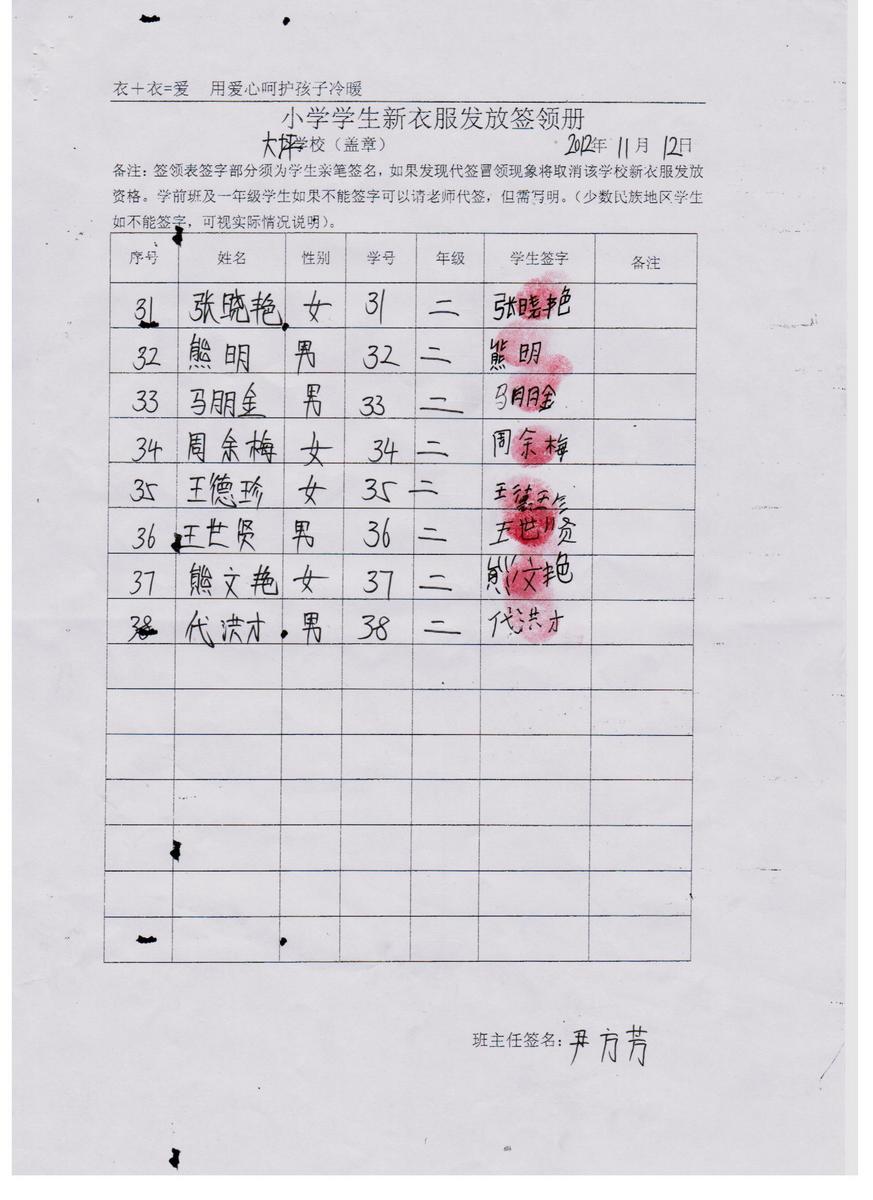 衣+衣=爱 用爱心呵护孩子冷暖
小学学生新衣服发放签领册
大坪学校（盖章） 2012年 11月 12日
备注：签领表签字部分须为学生亲笔签名，如果发现代签冒领现象将取消该学校新衣服发放
资格。学前班及一年级学生如果不能签字可以请老师代签，但需写明。（少数民族地区学生
如不能签字，可视实际情况说明）。
序号 姓名 性别 学号 年级 学生签字 备注
31 张晓艳 女 31 二 张晓艳
32 熊明 男 32 二 熊明
33 马朋金 男 33 二 马朋金
34 周余梅 女 34 二 周余梅
35 王德珍 女 35 二 王德珍
36 王世贤 男 36 二 王世贤
37 熊文艳 女 37 二 熊文艳
38 代洪才 男 38 二 代洪才
班主任签名：尹方芳